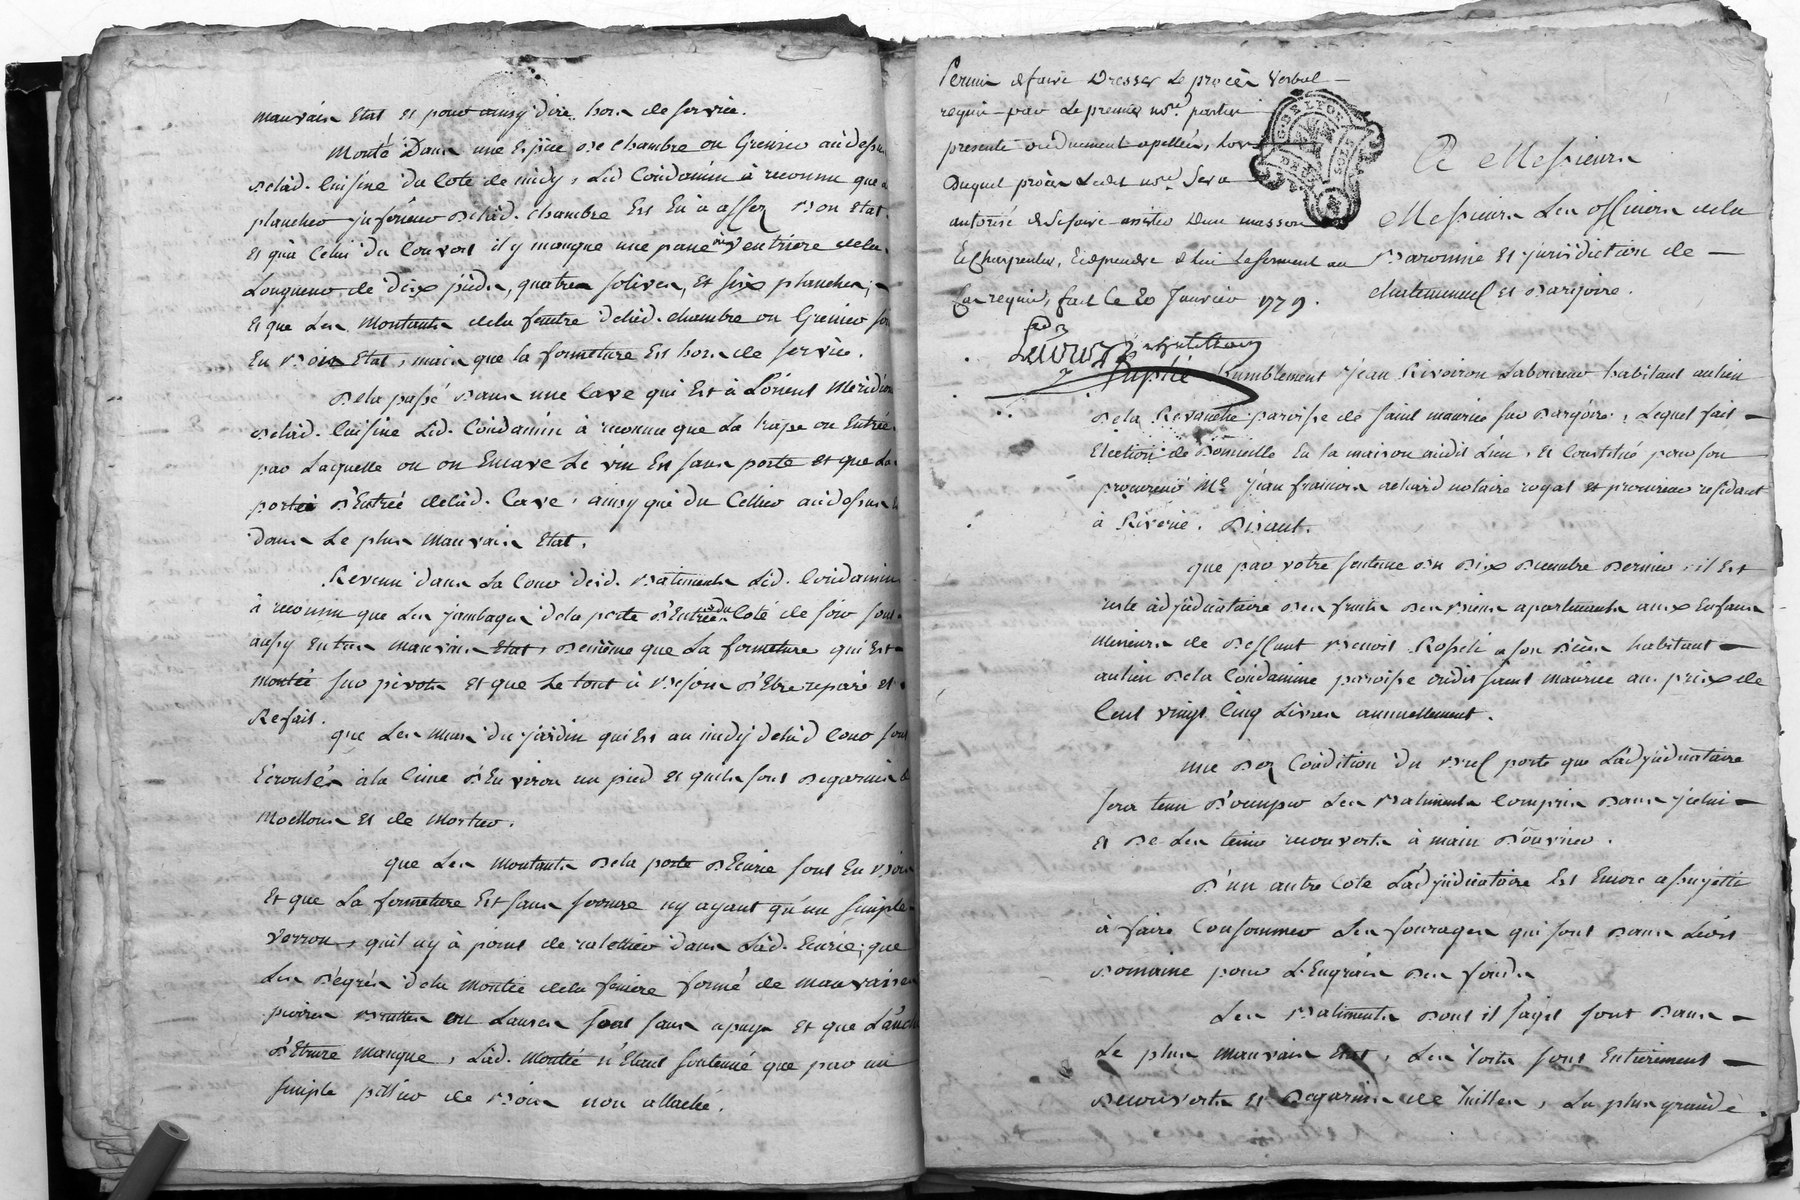 mauvais Etat et pour ainsy dire hors de service.
Monté Dans une Espece de chambre ou Grenier audessus
delad. Cuisine du Coté de midy, Led Coindamin à reconnu que
plancher inferieur delad. chambre Est En assez Bon etat
et qua Celui du Couvert il y manque une pane ou Ventriere dela
Longueur de Dix pieds, quatres solives, et six planches;
et que Les Montants dela fenêtre delad. chambre ou Grenier sont
En Bon Etat, mais que la fermeture Est hors de service.
Dela passé Dans une Cave qui Est à Lorient Meridional
delad. Cuisine Led. Coindamin à reconnu que La trape ou Entrée
par Laquelle on Encave Le vin Est sans porte et que La
porte D'Entrée delad. Cave, ainsy que du Cellier audessus Est
dans Le plus Mauvais Etat.
Revenu dans La Cour desd. Batiments Led. Coindamin
à reconnu que Les jambages dela porte D'Entrée du Coté de soir sont
aussy En tres mauvais Etat, Demême que La fermeture qui Est
montée sur pivots et que Le tout à Besoin D'Etre reparé et
Refait.
que Les murs du jardin qui Est au midy delad Cour sont
Ecroulés àla Cime D'Environ un pied et quils sont Degarnis de
Moellons et de Mortier.
que Les Montants Dela porte D'Ecurie sont En Bois
Et que La fermeture Est sans serrure ny ayant qu'un simple
Verrou, quil ny à point de ratellier dans Lad. Ecurie; que
Les Dégrés dela Montée dela feniere formé de mauvaises
pierres Brutes ou Lauses sont sans apuys et que
manque, Lad. Montée n'Etant soutenue que par un
simple pillier de Bois non attaché.
Permis de faire Dresser Le procès Verbal
requis par Le premier nore. parties
presente ou Duement apellées, Lors
Duquel procès Ledit nore. sera
autorisé de se faire assister D'un masson
Et Charpentier, Et de prendre de Lui Le serment au
Cas requis, fait Le 20 Janvier 1779.
G. DE LYON
DEUX SOLS
A Messieurs
Messieurs Les officiers dela
Baronnie et jurisdiction de
chatelneuf et Dargoire.
Suplie humblement Jean Rivoiron Laboureur habitant aulieu
Dela Revanche paroisse de saint maurice sur Dargoire, Lequel fait
Election de Domicille En sa maison audit Lieu, et Constitue pour son
procureur Me. Jean françois achard notaire royal et procureur residant
à Riverie. Disant.
que par votre sentence du Dix Decembre Dernier il Est
resté adjudicataire Des fruits Des Biens apartenants aux Enfans
Mineurs de Deffunt Benoit habitant
aulieu Dela Condamine paroisse dudit saint maurice au prix de
Cent vingt Cinq Livres annuellement.
une Des Condition du Bail porte que Ladjudicataire
sera tenu D'occuper Les Batiments Compris Dans jcelui
et De Les tenir recouverts à main D'ouvrier.
D'un autre Coté L'adjudicataire Est Encore assujetti
à faire Consommer Les fourages qui sont Dans Ledit
Domaine pour L'Engrais Des fonds
Les Batiments Dont il s'agit sont Dans
Le plus mauvais Etat, Les toits sont Entierement
Decouverts et Degarnis de tuilles, La plus grande